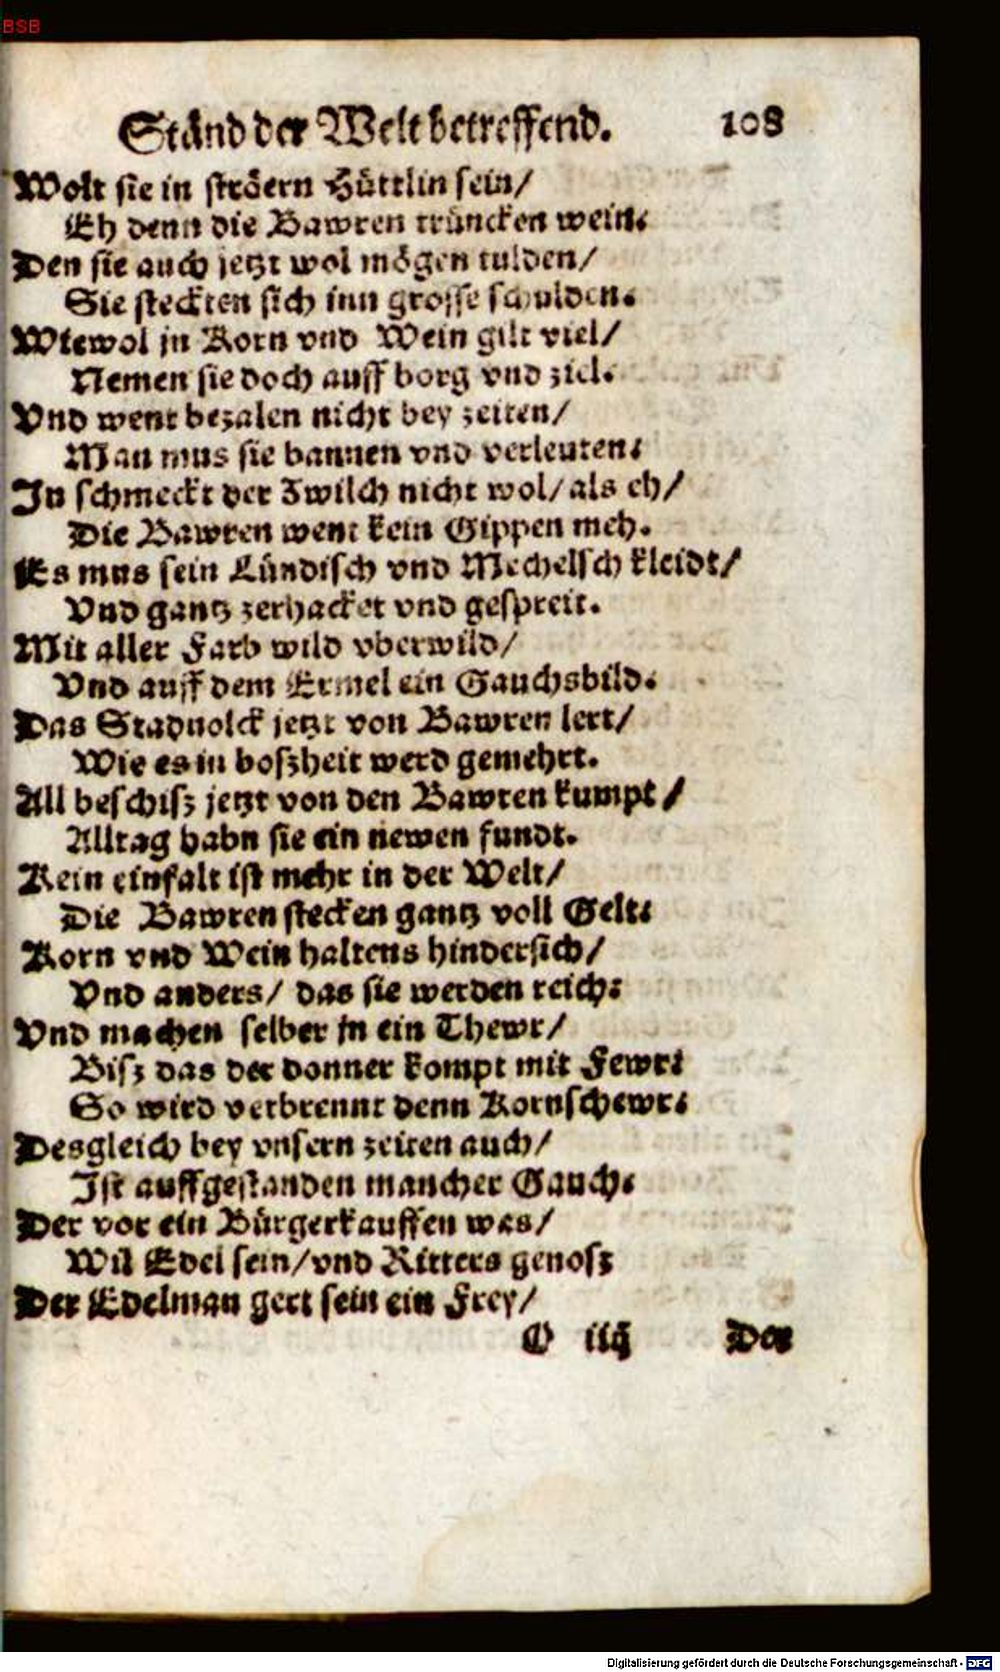 BSB
Ständ der Welt betreffend. 108
Wolt sie in ströern Hüttlin sein/
Eh denn die Bawren trüncken wein:
Den sie auch jetzt wol mögen tulden/
Sie steckten sich inn grosse schulden.
Wiewol jn Korn vnd Wein gilt viel/
Nemen sie doch auff borg vnd ziel.
Vnd went bezalen nicht bey zeiten/
Man mus sie bannen vnd verleuten:
Jn schmeckt der Zwilch nicht wol/ als eh/
Die Bawren went kein Gippen meh.
Es mus sein Lündisch vnd Mechelsch kleidt/
Vnd gantz zerhacket vnd gespreit.
Mit aller Farb wild vberwild/
Vnd auff dem Ermel ein Gauchsbild.
Das Stadvolck jetzt von Bawren lert/
Wie es in boszheit werd gemehrt.
All beschisz jetzt von den Bawren kumpt/
Alltag habn sie ein newen fundt.
Kein einfalt ist mehr in der Welt/
Die Bawren stecken gantz voll Gelt:
Korn vnd Wein haltens hindersich/
Vnd anders/ das sie werden reich:
Vnd machen selber jn ein Thewr/
Bisz das der donner kompt mit Fewr:
So wird verbrennt denn Kornschewr:
Desgleich bey vnsern zeiten auch/
Ist auffgestanden mancher Gauch:
Der vor ein Bürgerkauffen was/
Wil Edel sein/ vnd Ritters genosz
Der Edelman gert sein ein Frey/
O iiij Der
Digitalisierung gefördert durch die Deutsche Forschungsgemeinschaft - DFG